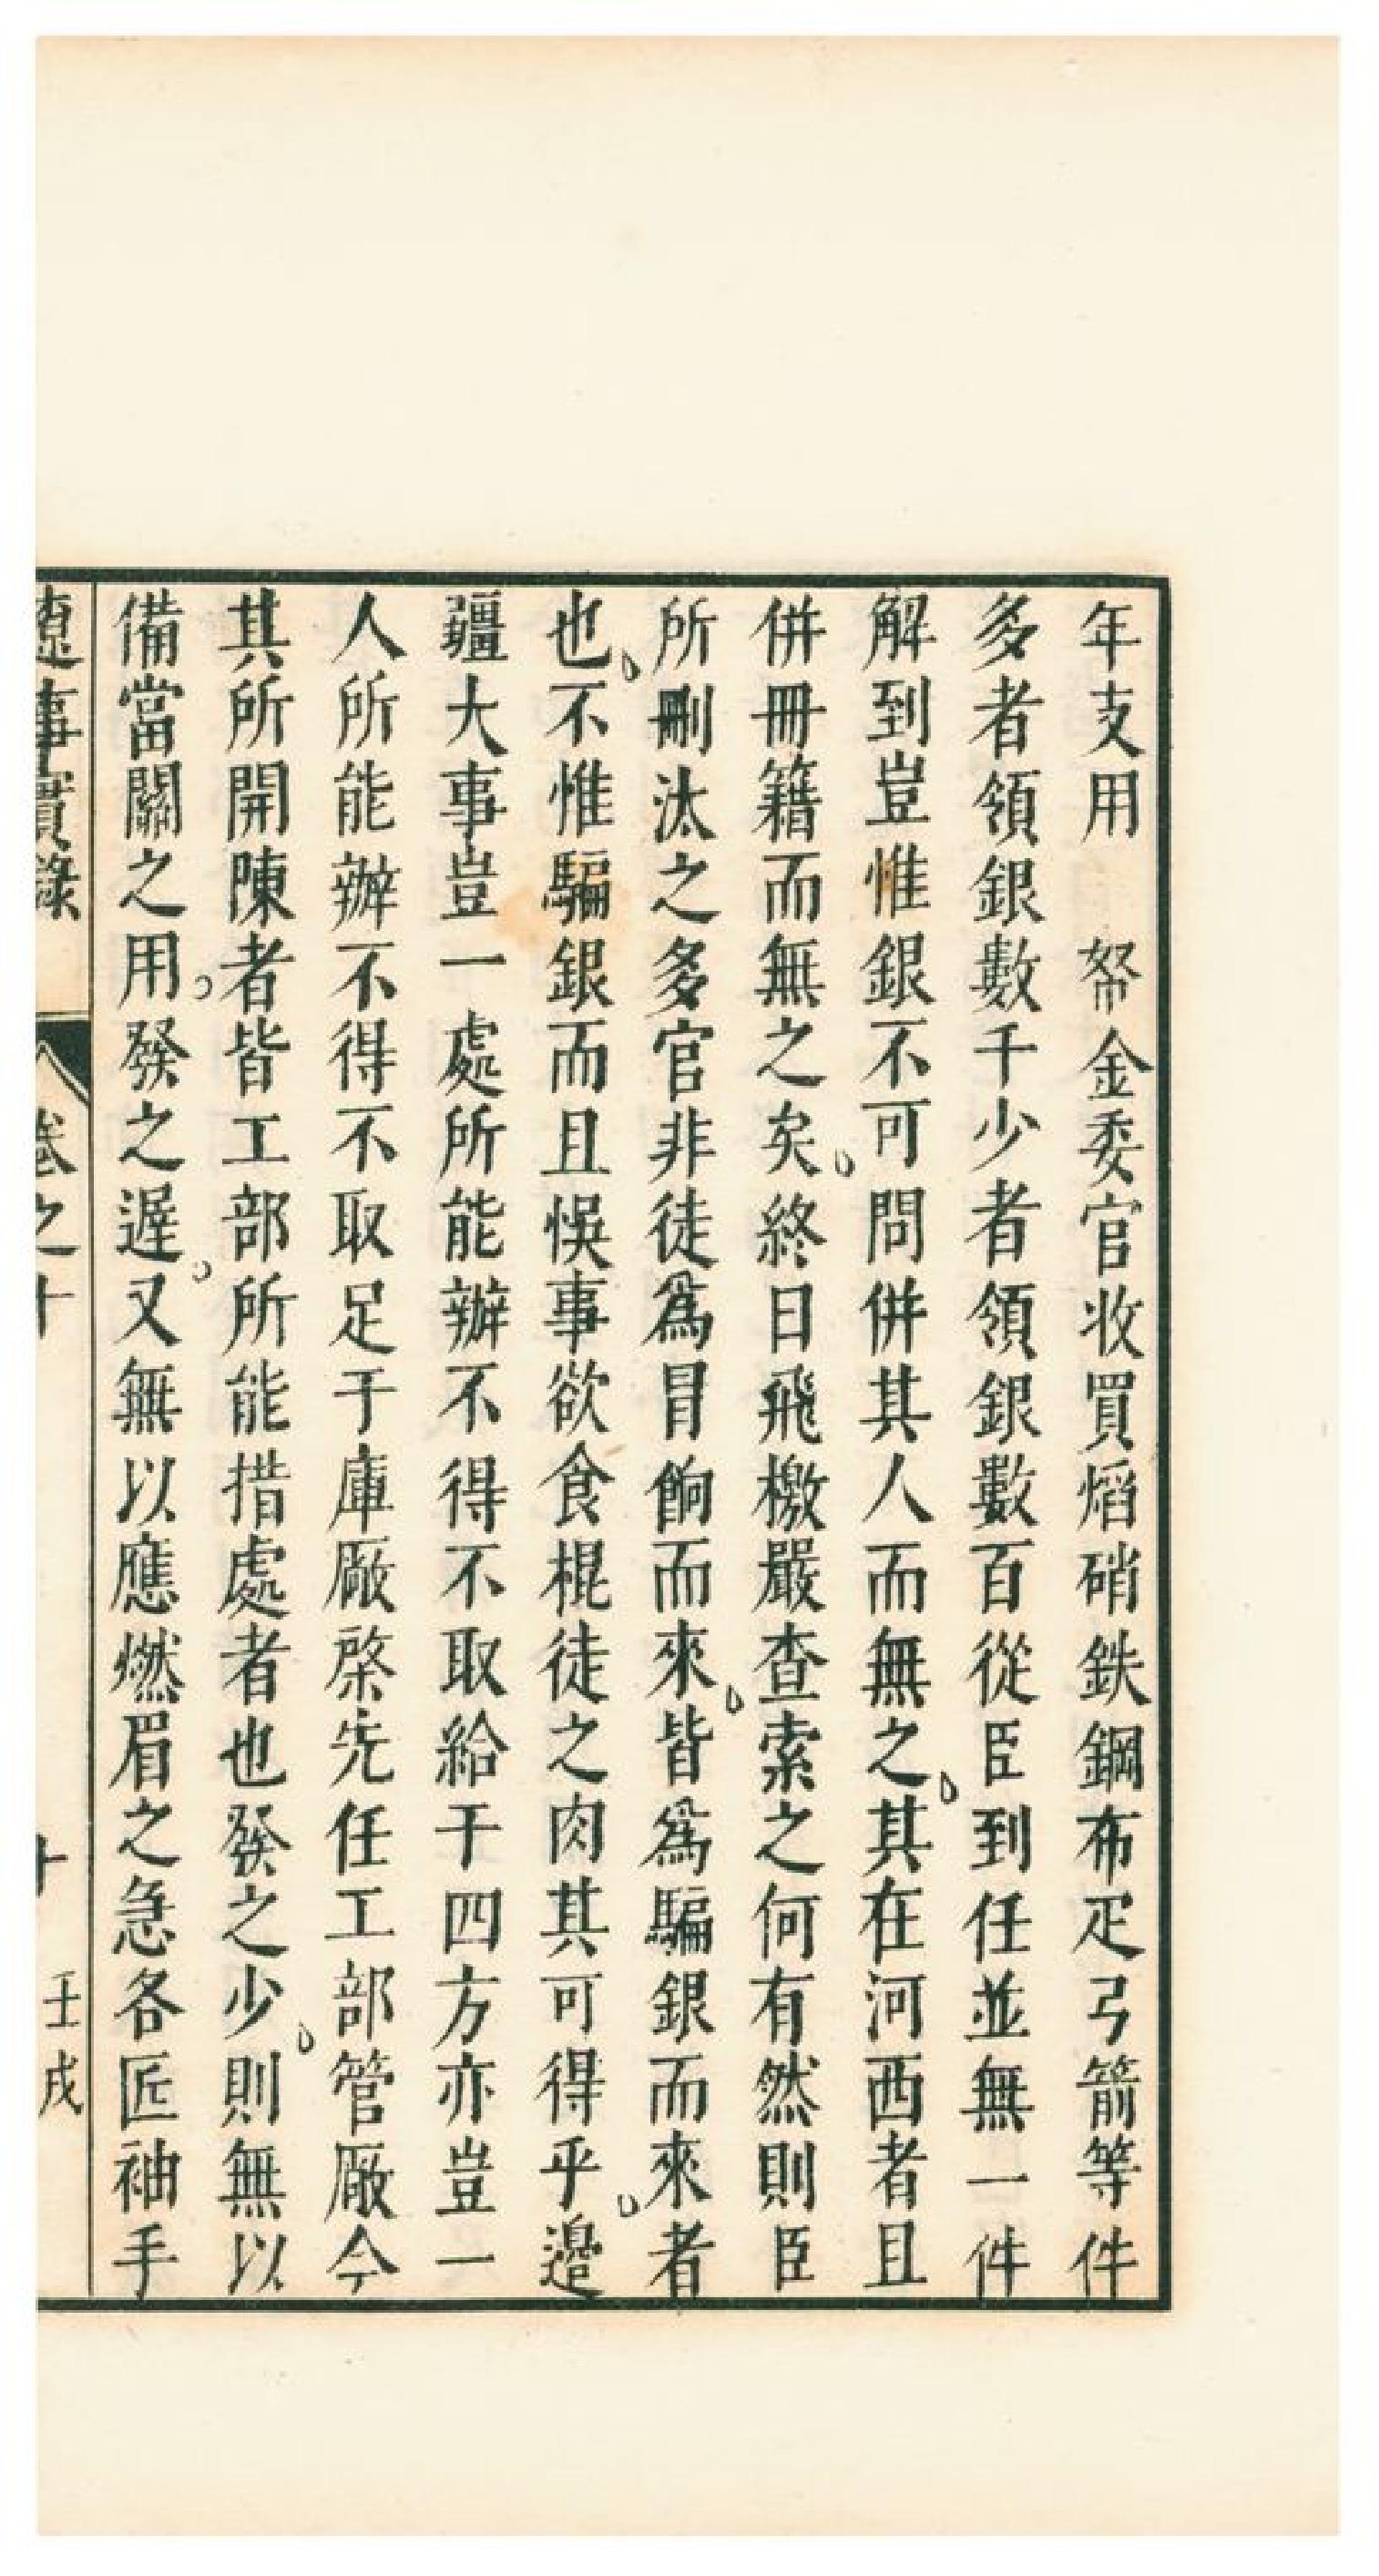 年支用　帑金委官收買熖硝鉄鋼布疋弓箭等件
多者領銀數千少者領銀數百從臣到任並無一件
解到豈惟銀不可問併其人而無之其在河西者且
併冊籍而無之矣終日飛檄嚴查索之何有然則臣
所刪汰之多官非徒爲冒餉而來皆爲騙銀而來者
也不惟騙銀而且悞事欲食棍徒之肉其可得乎邉
疆大事豈一處所能辦不得不取給于四方亦豈一
人所能辦不得不取足于庫廠棨先任工部管廠今
其所開陳者皆工部所能措處者也發之少則無以
備當關之用發之遲又無以應燃眉之急各匠袖手
遼事實錄　卷之十　十　壬戌